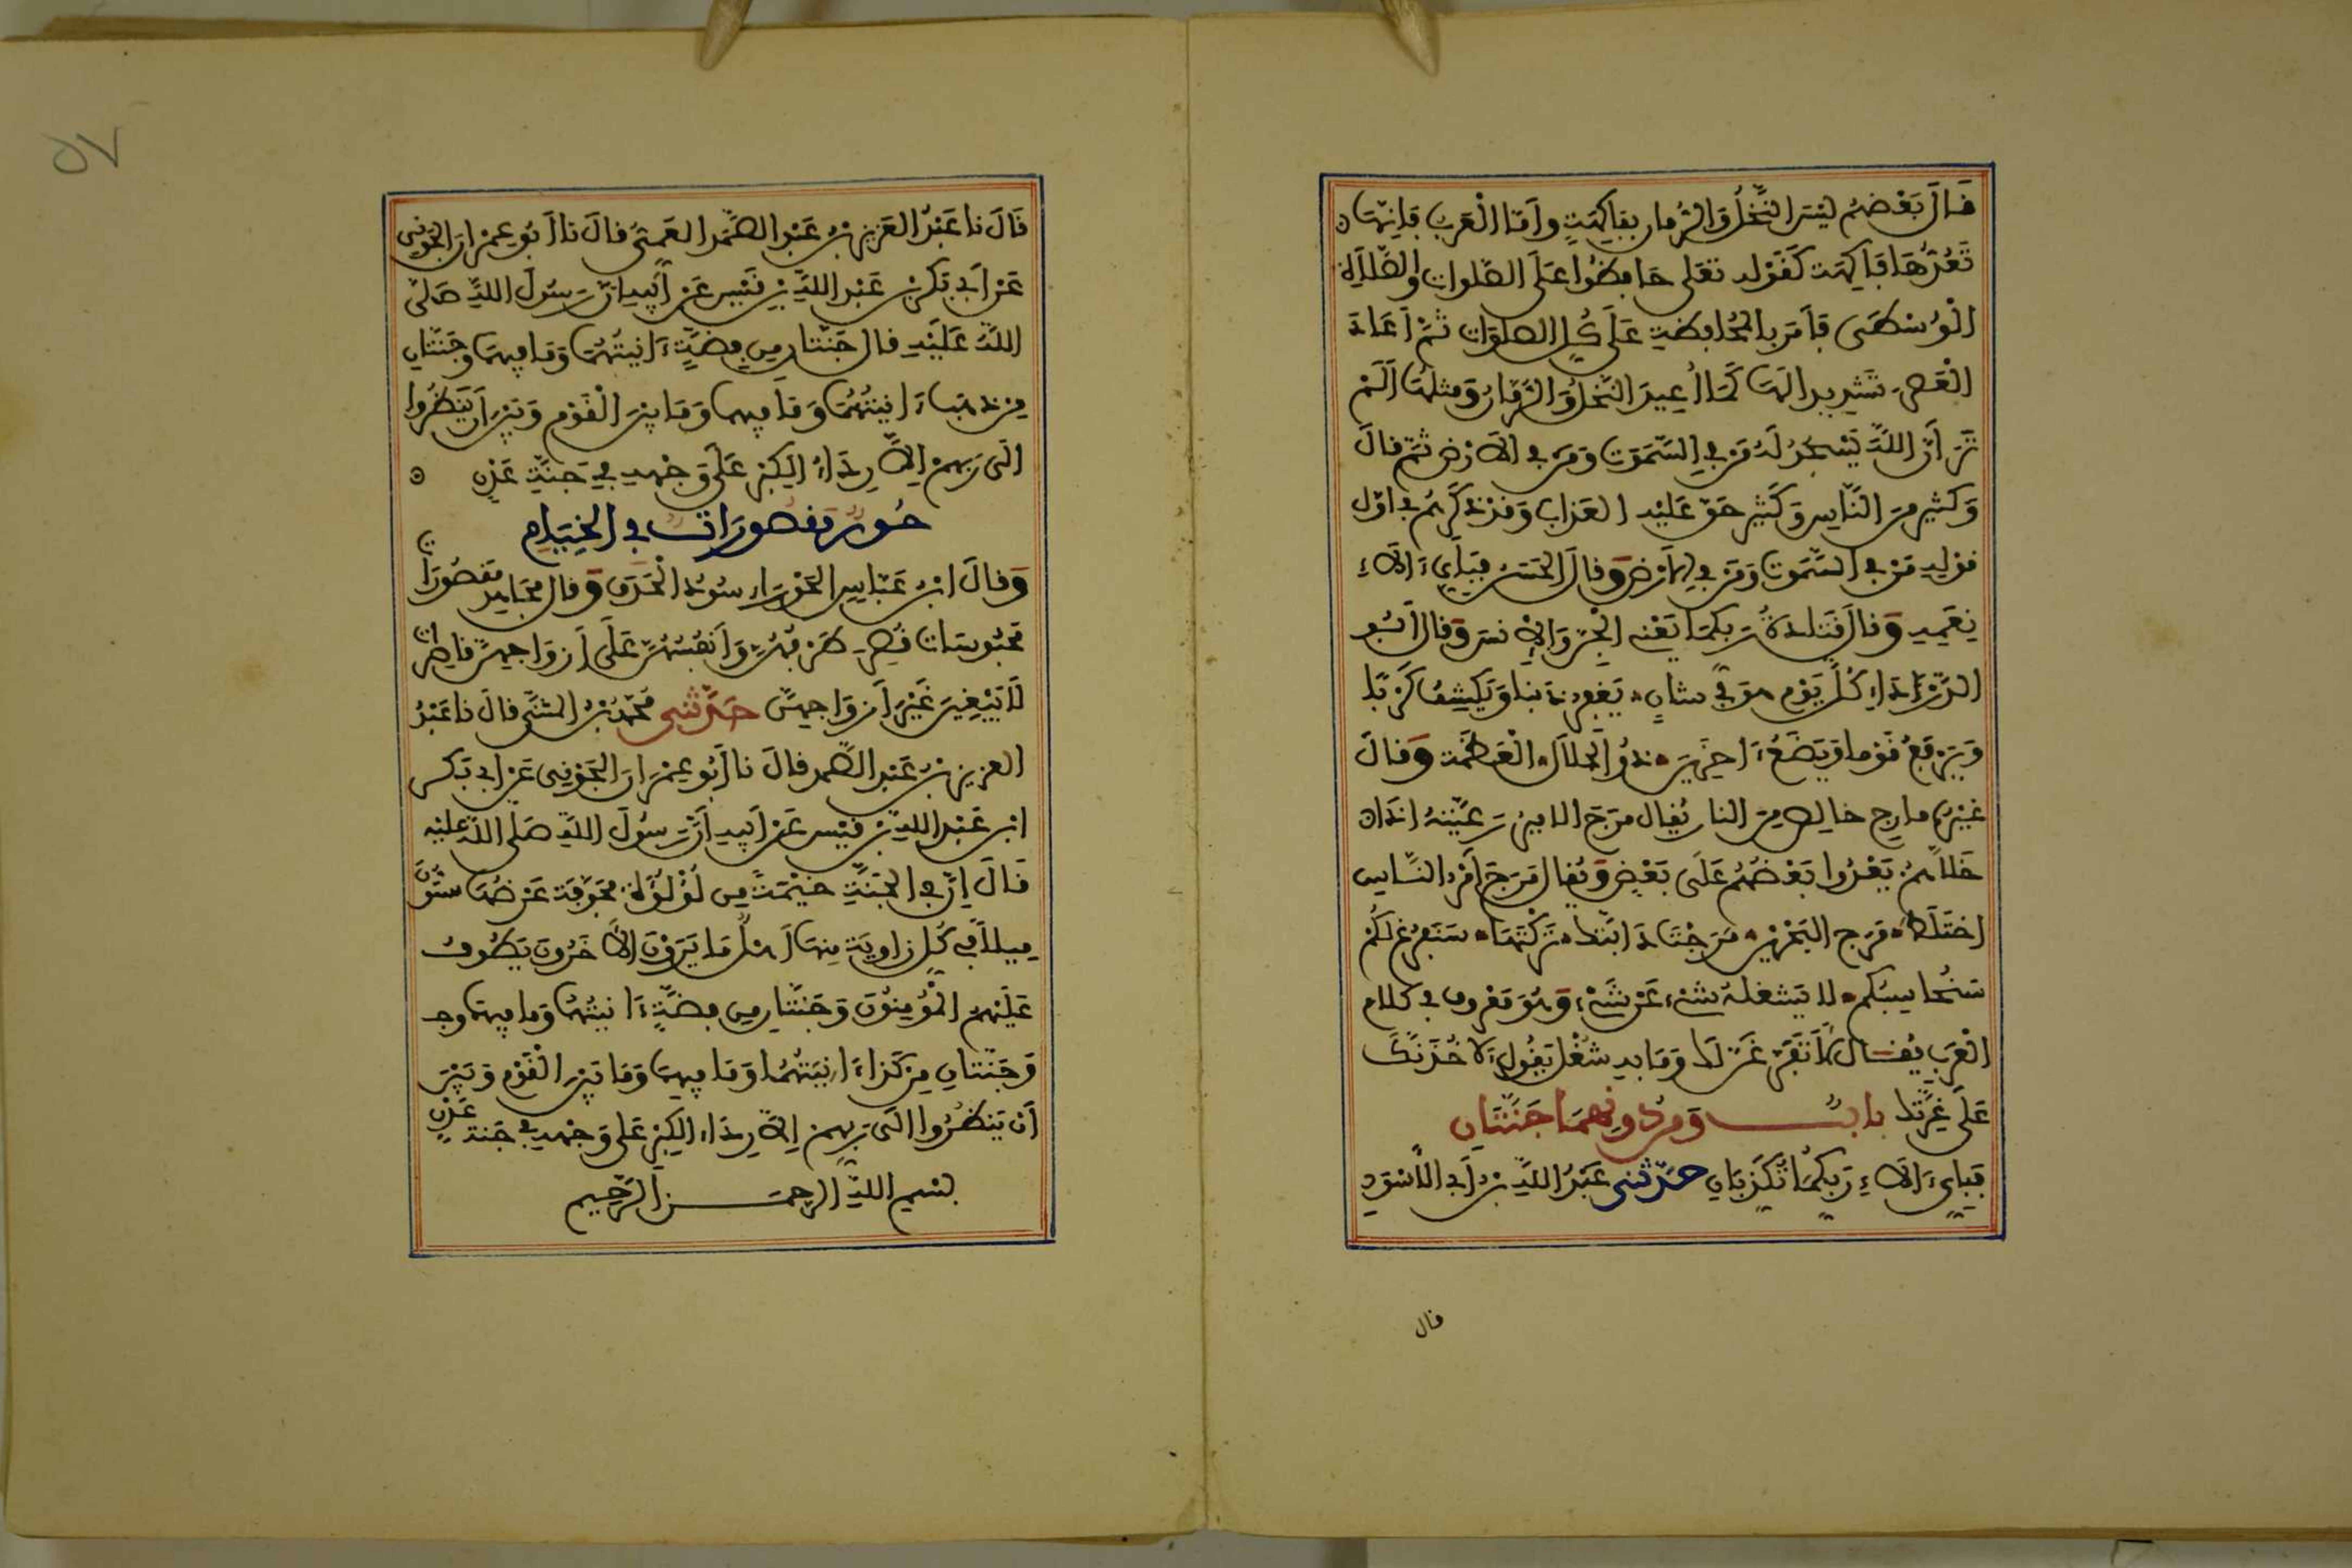 قَالَ بَعْضُهُم لَيْسَ النَّخْلُ وَالرُّمان بفاكِهَةٍ وأمّا الْعَرَبُ فَإنّها
تَعُدُّهَا فَاكِهَة كَقَوْلِه تعلى حَافِظُوا عَلَى الصَّلوات والصَّلاَةِ
الْوُسْطَى فَأمَرَ بالمُحَافِظةِ عَلَى كُلِّ الصلَوَات ثمَّ أَعَادَ
الْعَصر تَشْدِيدا لَهَا كَمَا أُعِيدَ النَّخلُ وَالرُّمَّانُ وَمثلُهَا أَلَمْ
تَرَ أنَّ اللَّهَ يَسْجُدُ لَهُ مَن فِي السَّمَوَت وَمَن فِي الأرْضِ ثمّ قالَ
وَكثِير منَ النَّاسِ وَكَثِير حَقّ عَلَيْه العَذاب وَقَدْ ذَكَرَهُم فِي أوّل
قوْلِهِ مَن فِي السَّمَوت وَمَن فِي الأرْضِ وَقالَ الحَسَنُ فَبِأيِّ ءَالاَءِ
نِعَمِهِ وَقالَ قَتَادَةُ رَبِّكمَا يَعْنِي الْجِنَّ وَالإنسَ وَقال أبُو
الدَّرْدَاءِ كُلَّ يَوْمٍ هوَ في شانٍ يَغْفِرُ ذَنبا وَيَكْشِفُ كَرْبًا
وَيَرْفَعُ قَوْما وَيَضَعُ ءَاخَرِينَ ذُو الْجَلاَلِ الْعَظَمَة وَقالَ
غيْرُه مارِج خالِص مِن النار يُقال مَرَجَ الامِيرُ رَعِيَّتَهُ إذَا
خَلاَّهُمْ يَعْدُوا بَعْضُهُمْ عَلَى بَعْضٍ وَيُقال مَرَجَ أَمْرُ النَّاسِ
اخْتَلَطَ مَرَج البَحْرَيْنِ مَرَجْتَ دَابَّتكَ تَرَكْتَهَا سَنَفْرُغ لَكُمْ
سَنُحاسِبُكم لا يَشْغَلُهُ شَيْء عَنْ شَيْء وَهُوَ مَعْرُوف فِي كَلام
الْعَرَبِ يُقَالُ لَأَتَفَرَّغَنَّ لَكَ وَمَا بِهِ شُغْل يَقُولُ لَآخُذَنَّكَ
عَلَى غِرَّتِكَ بابُ وَمِن دُونِهِمَا جَنَّتَانِ
فَبِأيِّ ءَالاَءِ رَبِّكُمَا تُكَذِّبَانِ حَدَّثنِي عَبْدُ اللَّهِ بْنُ أَبِي الأَسْوَدِ
قال
٥٧
قَالَ نا عَبْدُ العَزِيزِ بْنُ عَبْدِ الصَّمَدِ العَمِّيُّ قالَ نا أَبُو عِمْرَانَ الجَوْنِي
عَنْ أَبِي بَكْرِ بْنِ عَبْدِ اللَّهِ بْنِ قَيْسٍ عَنْ أَبِيهِ أنّ رَسُولَ اللَّهِ صَلَّى
اللَّهُ عَلَيْهِ قال جَنَّتَانِ مِن فِضَّةٍ ءَانِيَتُهُمَا وَمَا فِيهِمَا وَجَنَّتَانِ
مِن ذهَب ءَانِيَتُهُمَا وَمَا فِيهِمَا وَمَا بَيْنَ الْقَوْمِ وَبَيْنَ أَنْ يَنْظُرُوا
إلَى رَبِّهِمْ إلاَّ رِدَاءُ الْكِبْرِ عَلَى وَجْهِهِ فِي جَنَّةِ عَدْنٍ
حُورٌ مَقصُورَاتٌ فِي الخِيَامِ
وَقالَ ابْنُ عَبَّاسٍ الحَوْرَاء سُودُ الْحَدَقِ وَقال مُجَاهِد مَقصُورَات
مَحْبُوسَات قُصِرَ طَرْفُهُنَّ وَأَنفُسُهُنَّ عَلَى أَزوَاجِهِنَّ قاصِرَات
لَا يَبْغِينَ غَيْرَ أَزْوَاجِهِنَّ حَدَّثَنِي مُحَمَّدُ بْنُ المُثَنَّى قالَ نا عَبْدُ
العزيز بْنُ عَبْدِ الصَّمَدِ قالَ نا أَبُو عِمْرَانَ الجَوْنِي عَنْ أَبِي بَكْرِ
ابْنِ عَبْدِ اللَّهِ بْنِ قَيْسٍ عَنْ أَبِيهِ أَنَّ رَسُولَ اللَّهِ صَلى اللَّهُ عَلَيْهِ
قَالَ إنَّ فِي الْجَنَّةِ خَيْمَةً مِن لُؤْلُؤَةٍ مُجَوَّفَة عَرْضُهَا سِتُّونَ
مِيلاً فِي كُلِّ زَاوِيَة مِنْهَا أَهْلٌ مَا يَرَوْنَ الآخَرُونَ يَطُوفُ
عَلَيْهِمُ الْمُؤْمِنُونَ وَجَنَّتَانِ مِن فِضَّةٍ ءَانِيَتُهُمَا وَمَا فِيهِمَا وجـ
وَجَنَّتَانِ مِن كَذَا ءَانِيَتُهُمَا وَمَا فِيهِمَا وَمَا بَيْنَ الْقَوْمِ وَبَيْنَ
أَنْ يَنظُرُوا إلَى رَبِّهِمْ إلاَّ رِدَاءُ الْكِبْرِ عَلَى وَجْهِهِ فِي جَنَّة عَدْنٍ
بِسْمِ اللَّهِ الرَّحْمَنِ الرَّحِيمِ